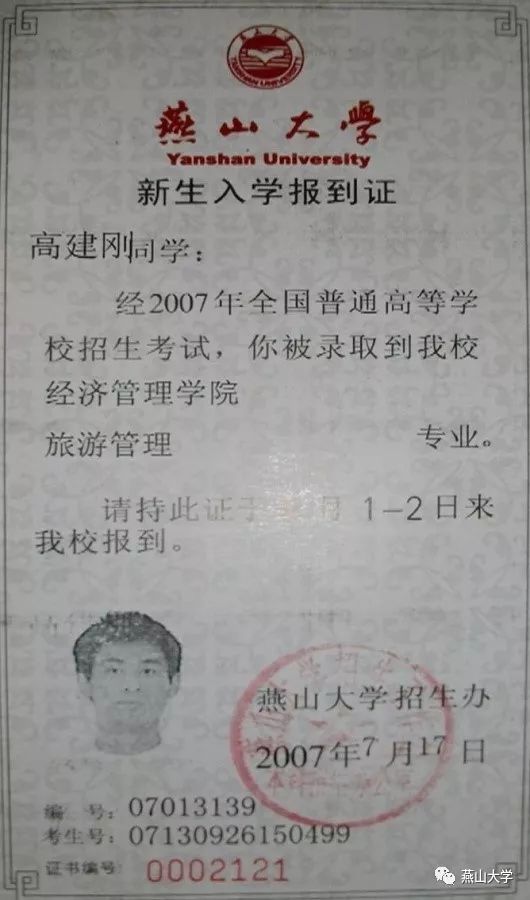 燕山大学
YANSHAN UNIVERSITY
燕山大學
Yanshan University
新生入学报到证
高建刚同学：
经2007年全国普通高等学
校招生考试，你被录取到我校
经济管理学院
旅游管理 专业。
请持此证于 月 1-2日来
我校报到。
燕山大学招生办
2007年7月17日
编 号：07013139
考生号：07130926150499
证书编号：0002121
燕山大学